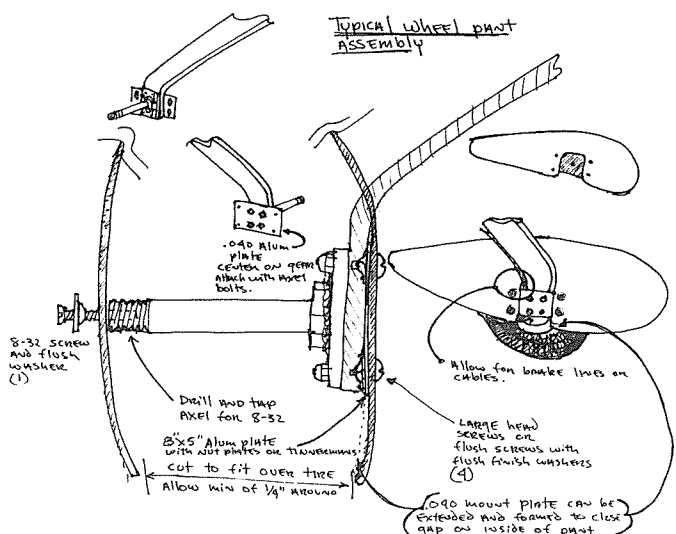 Typical wheel pant
Assembly
.090 Alum
plate
center on gear
Attach with Axel
bolts.
8-32 screw
and flush
washer
(1)
Drill and tap
Axel for 8-32
8"x5" Alum plate
with nut plates or tinnermans
cut to fit over tire
Allow min of 1/4" around
Allow for brake lines or
cables.
Large head
screws or
flush screws with
flush finish washers
(4)
.090 mount plate can be
extended and formed to close
gap on inside of pant